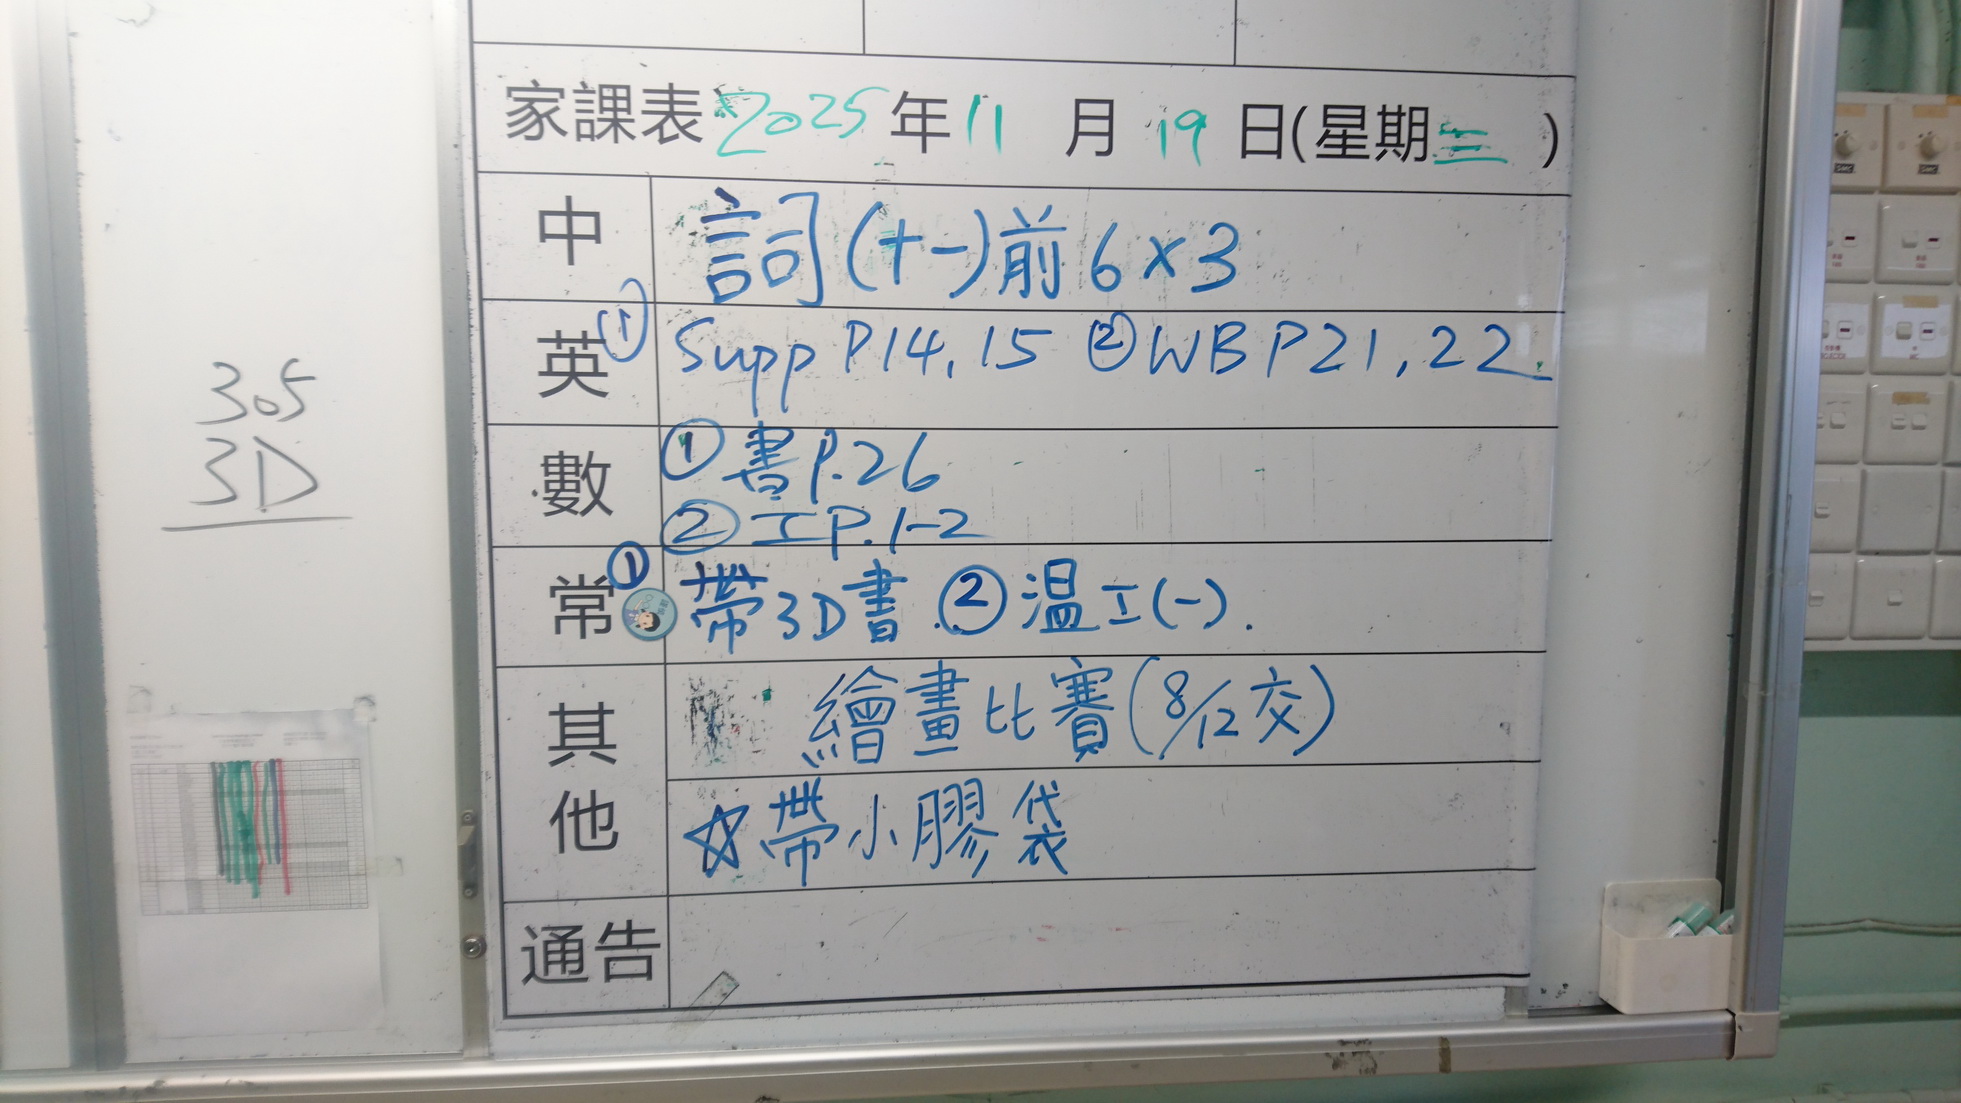 家課表 2025年11月19日(星期三)
中 詞(十一)前6×3
英 ① Supp P14,15 ② WB P21,22
數 ① 書P.26
② 工P.1-2
常 ① 帶3D書 ② 温工(一).
其他 繪畫比賽(8/12交)
☆帶小膠袋
通告
305
3D